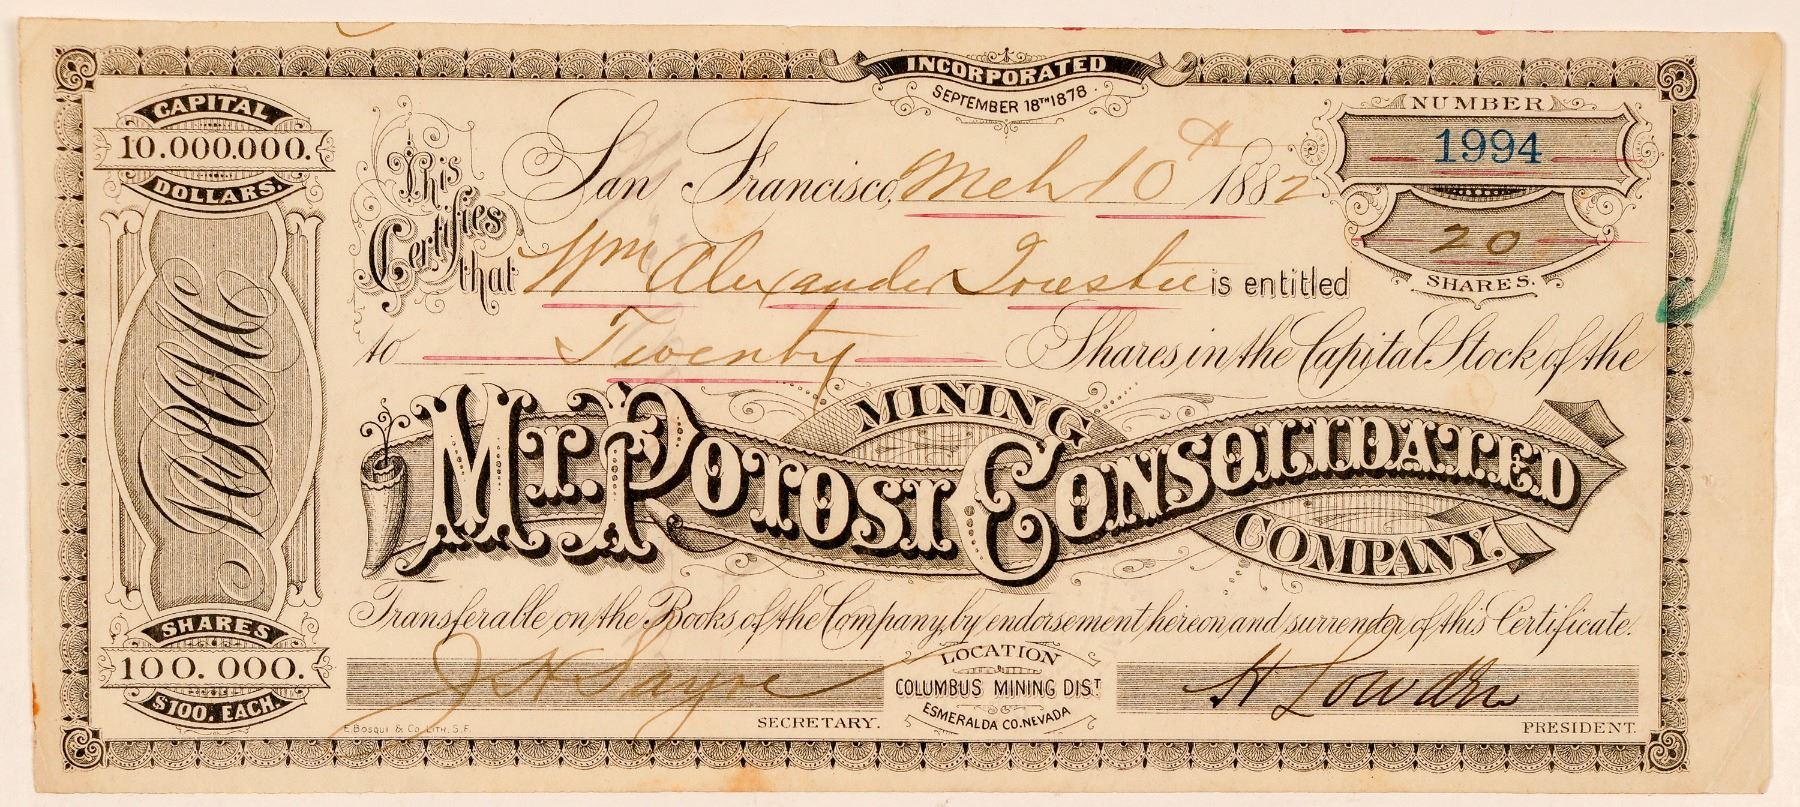 INCORPORATED
SEPTEMBER 18TH 1878.
CAPITAL
10.000.000.
DOLLARS.
NUMBER
1994
20
SHARES.
San Francisco, Mch 10th 1882
This Certifies that Wm Alexander Trustee is entitled
to Twenty Shares in the Capital Stock of the
MT. POTOSI CONSOLIDATED
MINING
COMPANY.
Transferable on the Books of the Company by endorsement hereon and surrender of this Certificate.
SHARES
100.000.
$100. EACH.
J H Sayre
SECRETARY.
LOCATION
COLUMBUS MINING DIST
ESMERALDA CO. NEVADA
H
PRESIDENT.
E. Bosqui & Co. Lith. S.F.